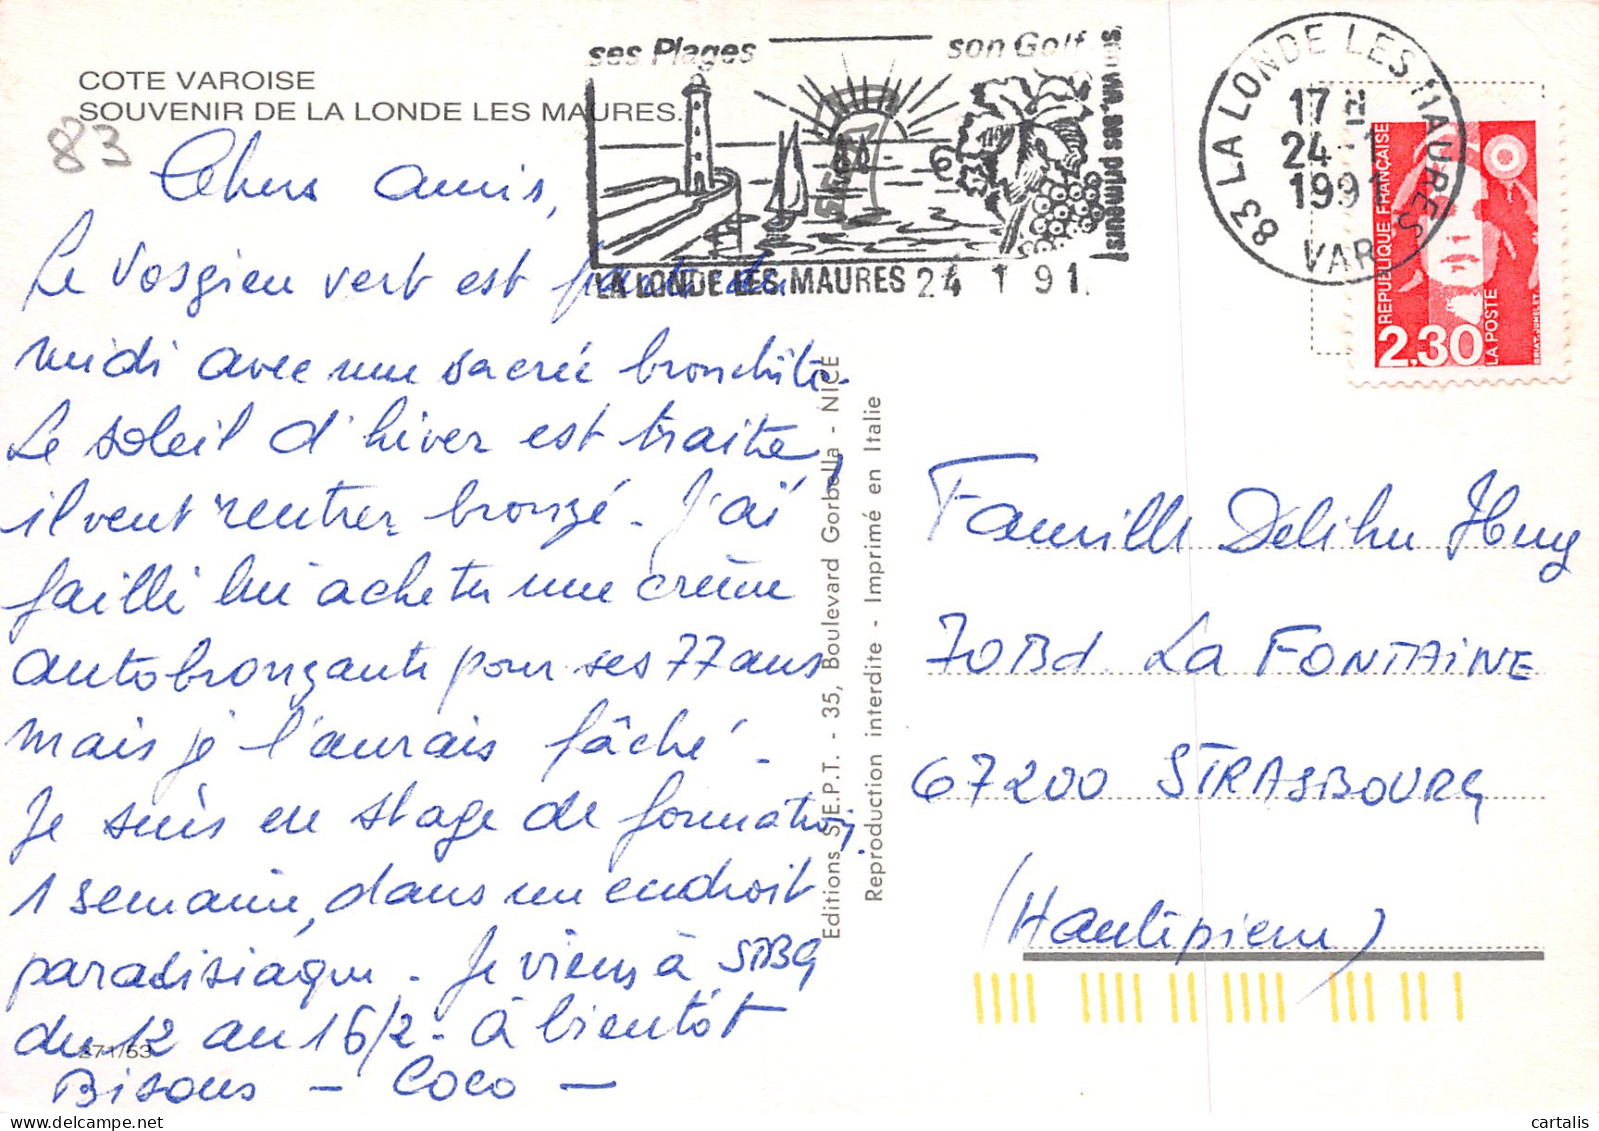 COTE VAROISE
SOUVENIR DE LA LONDE LES MAURES.
83
Chers amis,
Le Vosgien vert est parti du
midi avec une sacrée bronchite.
Le soleil d'hiver est traitre,
il veut rentrer bronzé. J'ai
failli lui acheter une crème
autobronzante pour ses 77 ans
mais je l'aurais fâché.
Je suis en stage de formation,
1 semaine, dans un endroit
paradisiaque. Je viens à STBG
du 12 au 16/2. à bientôt
Bisous - Coco -
271/53
ses Plages
son Golf,
ses vins, ses primeurs!
LA LONDE-LES-MAURES 24 1 91.
83 LA LONDE LES MAURES
17 H
24 -1
1991
VAR
REPUBLIQUE FRANÇAISE
2,30
LA POSTE
BRIAT-JUMELET
Editions S.E.P.T. - 35, Boulevard Gorbella - NICE
Reproduction interdite - Imprimé en Italie
Famille
70 Bd. La FONTAINE
67200 STRASBOURG
(Hautepierre)
cartalis